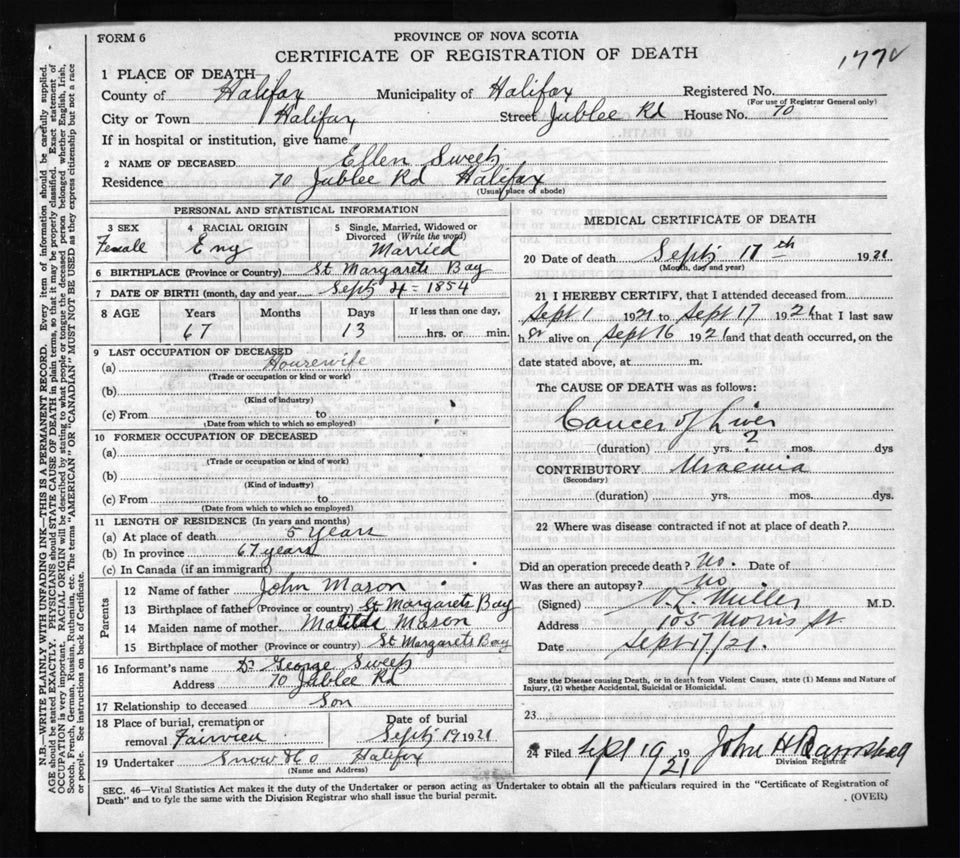 FORM 6
PROVINCE OF NOVA SCOTIA
CERTIFICATE OF REGISTRATION OF DEATH
1 PLACE OF DEATH
County of Halifax Municipality of Halifax Registered No.
(For use of Registrar General only)
City or Town Halifax Street Jublee Rd House No. 70
If in hospital or institution, give name
2 NAME OF DECEASED Ellen
Residence 70 Jublee Rd Halifax
(Usual place of abode)
PERSONAL AND STATISTICAL INFORMATION
3 SEX 4 RACIAL ORIGIN 5 Single, Married, Widowed or Divorced (Write the word)
Female Eng Married
6 BIRTHPLACE (Province or Country) St Margarets Bay
7 DATE OF BIRTH (month, day and year) Sept 4 - 1854
8 AGE Years Months Days If less than one day,
67 13 hrs. or min.
9 LAST OCCUPATION OF DECEASED
(a) Housewife
(Trade or occupation or kind of work)
(b)
(Kind of industry)
(c) From to
(Date from which to which so employed)
10 FORMER OCCUPATION OF DECEASED
(a)
(Trade or occupation or kind of work)
(b)
(Kind of industry)
(c) From to
(Date from which to which so employed)
11 LENGTH OF RESIDENCE (In years and months)
(a) At place of death 5 Years
(b) In province 67 years
(c) In Canada (if an immigrant)
Parents
12 Name of father John Mason
13 Birthplace of father (Province or country) St Margarets Bay
14 Maiden name of mother Matilda Mason
15 Birthplace of mother (Province or country) St Margarets Bay
16 Informant's name Dr George
Address 70 Jublee Rd
17 Relationship to deceased Son
18 Place of burial, cremation or removal Fairview
Date of burial Sept 19 1921
19 Undertaker Snow & Co Halifax
(Name and Address)
MEDICAL CERTIFICATE OF DEATH
20 Date of death Sept 17th 1921
(Month, day and year)
21 I HEREBY CERTIFY, that I attended deceased from
Sept 1 1921 to Sept 17 1921 that I last saw
her alive on Sept 16 1921 and that death occurred, on the
date stated above, at m.
The CAUSE OF DEATH was as follows:
Cancer of Liver
(duration) yrs. ? mos. dys
CONTRIBUTORY Uraemia
(Secondary)
(duration) yrs. mos. dys.
22 Where was disease contracted if not at place of death?
Did an operation precede death? No. Date of
Was there an autopsy? No
(Signed) Miller M.D.
Address 105 Morris St
Date Sept 17/21.
State the Disease causing Death, or in death from Violent Causes, state (1) Means and Nature of
Injury, (2) whether Accidental, Suicidal or Homicidal.
23
24 Filed Sept 19 1921 John H
Division Registrar
SEC. 46—Vital Statistics Act makes it the duty of the Undertaker or person acting as Undertaker to obtain all the particulars required in the "Certificate of Registration of
Death" and to fyle the same with the Division Registrar who shall issue the burial permit.
(OVER)
N.B.—WRITE PLAINLY WITH UNFADING INK—THIS IS A PERMANENT RECORD. Every item of information should be carefully supplied.
AGE should be stated EXACTLY. PHYSICIANS should STATE CAUSE OF DEATH in plain terms, so that it may be properly classified. Exact statement of
OCCUPATION is very important. RACIAL ORIGIN will be described by stating to what people or tongue the deceased person belonged whether English, Irish,
Scotch, French, German, Russian, Ruthenian, etc. The terms "AMERICAN" OR "CANADIAN" MUST NOT BE USED as they express citizenship but not a race
or people. See instructions on back of Certificate.